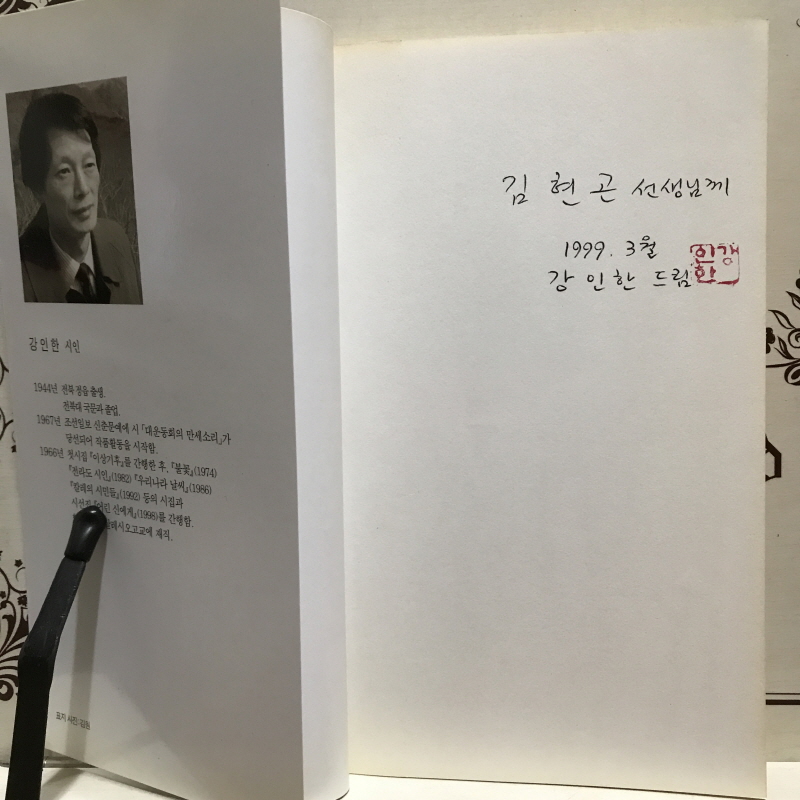 강인한 시인
1944년 전북 정읍 출생.
전북대 국문과 졸업.
1967년 조선일보 신춘문예에 시 「대운동회의 만세소리」가
당선되어 작품활동을 시작함.
1966년 첫시집 『이상기후』를 간행한 후, 『불꽃』(1974)
『전라도 시인』(1982) 『우리나라 날씨』(1986)
『칼레의 시민들』(1992) 등의 시집과
시선집 신에게』(1998)를 간행함.
재직.
표지 사진:김
김 현 곤 선생님께
1999. 3월
강 인 한 드림
강인한